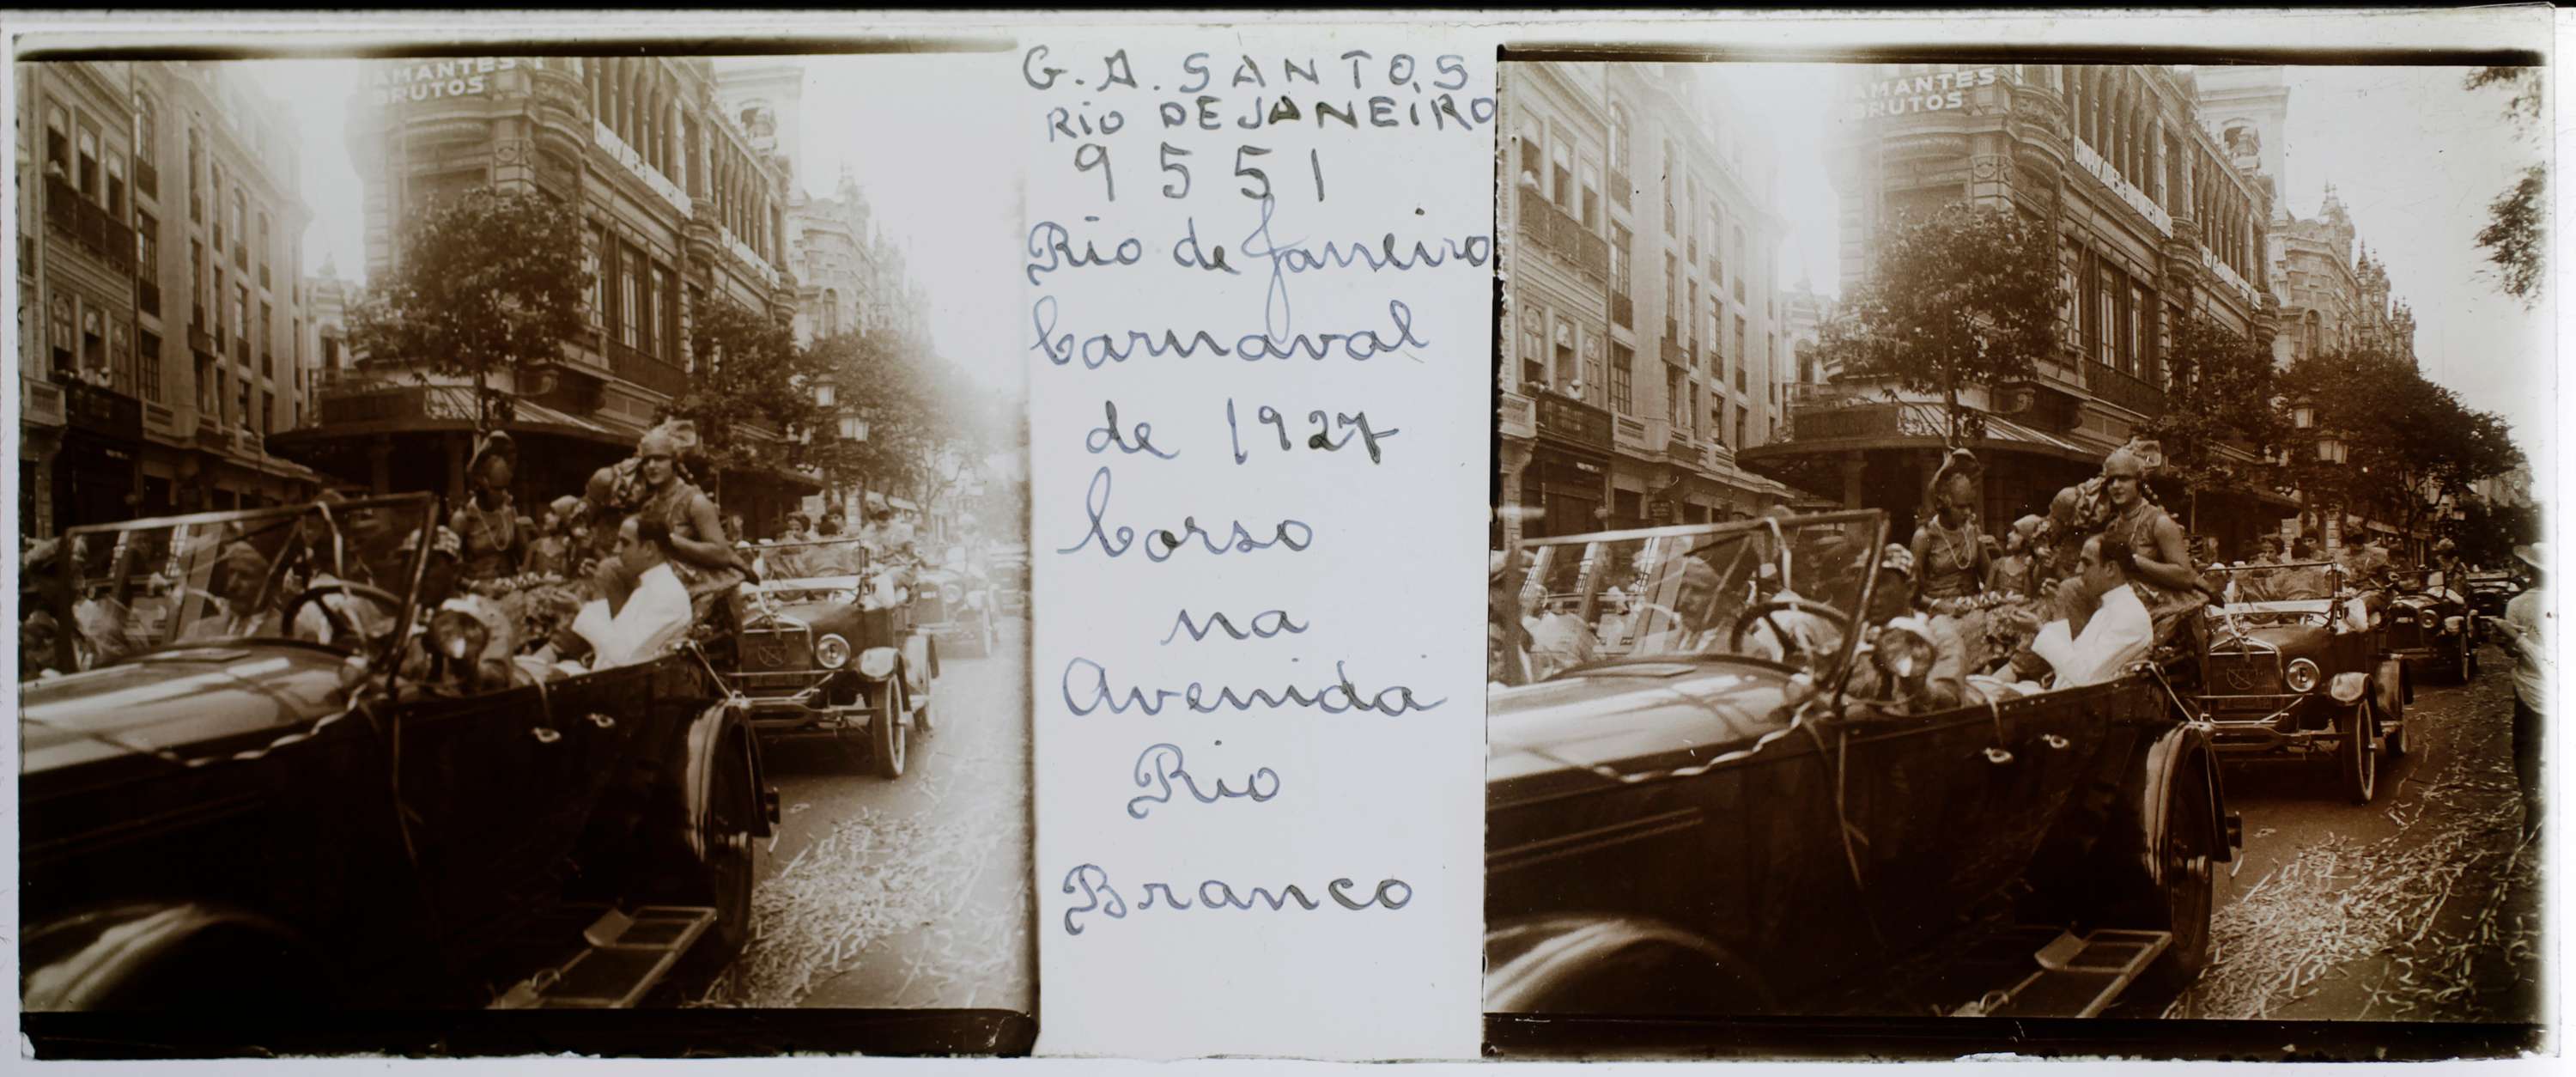 AMANTES
BRUTOS
G. A. SANTOS
RIO DE JANEIRO
9551
Rio de Janeiro
Carnaval
de 1927
Corso
na
Avenida
Rio
Branco
AMANTES
BRUTOS